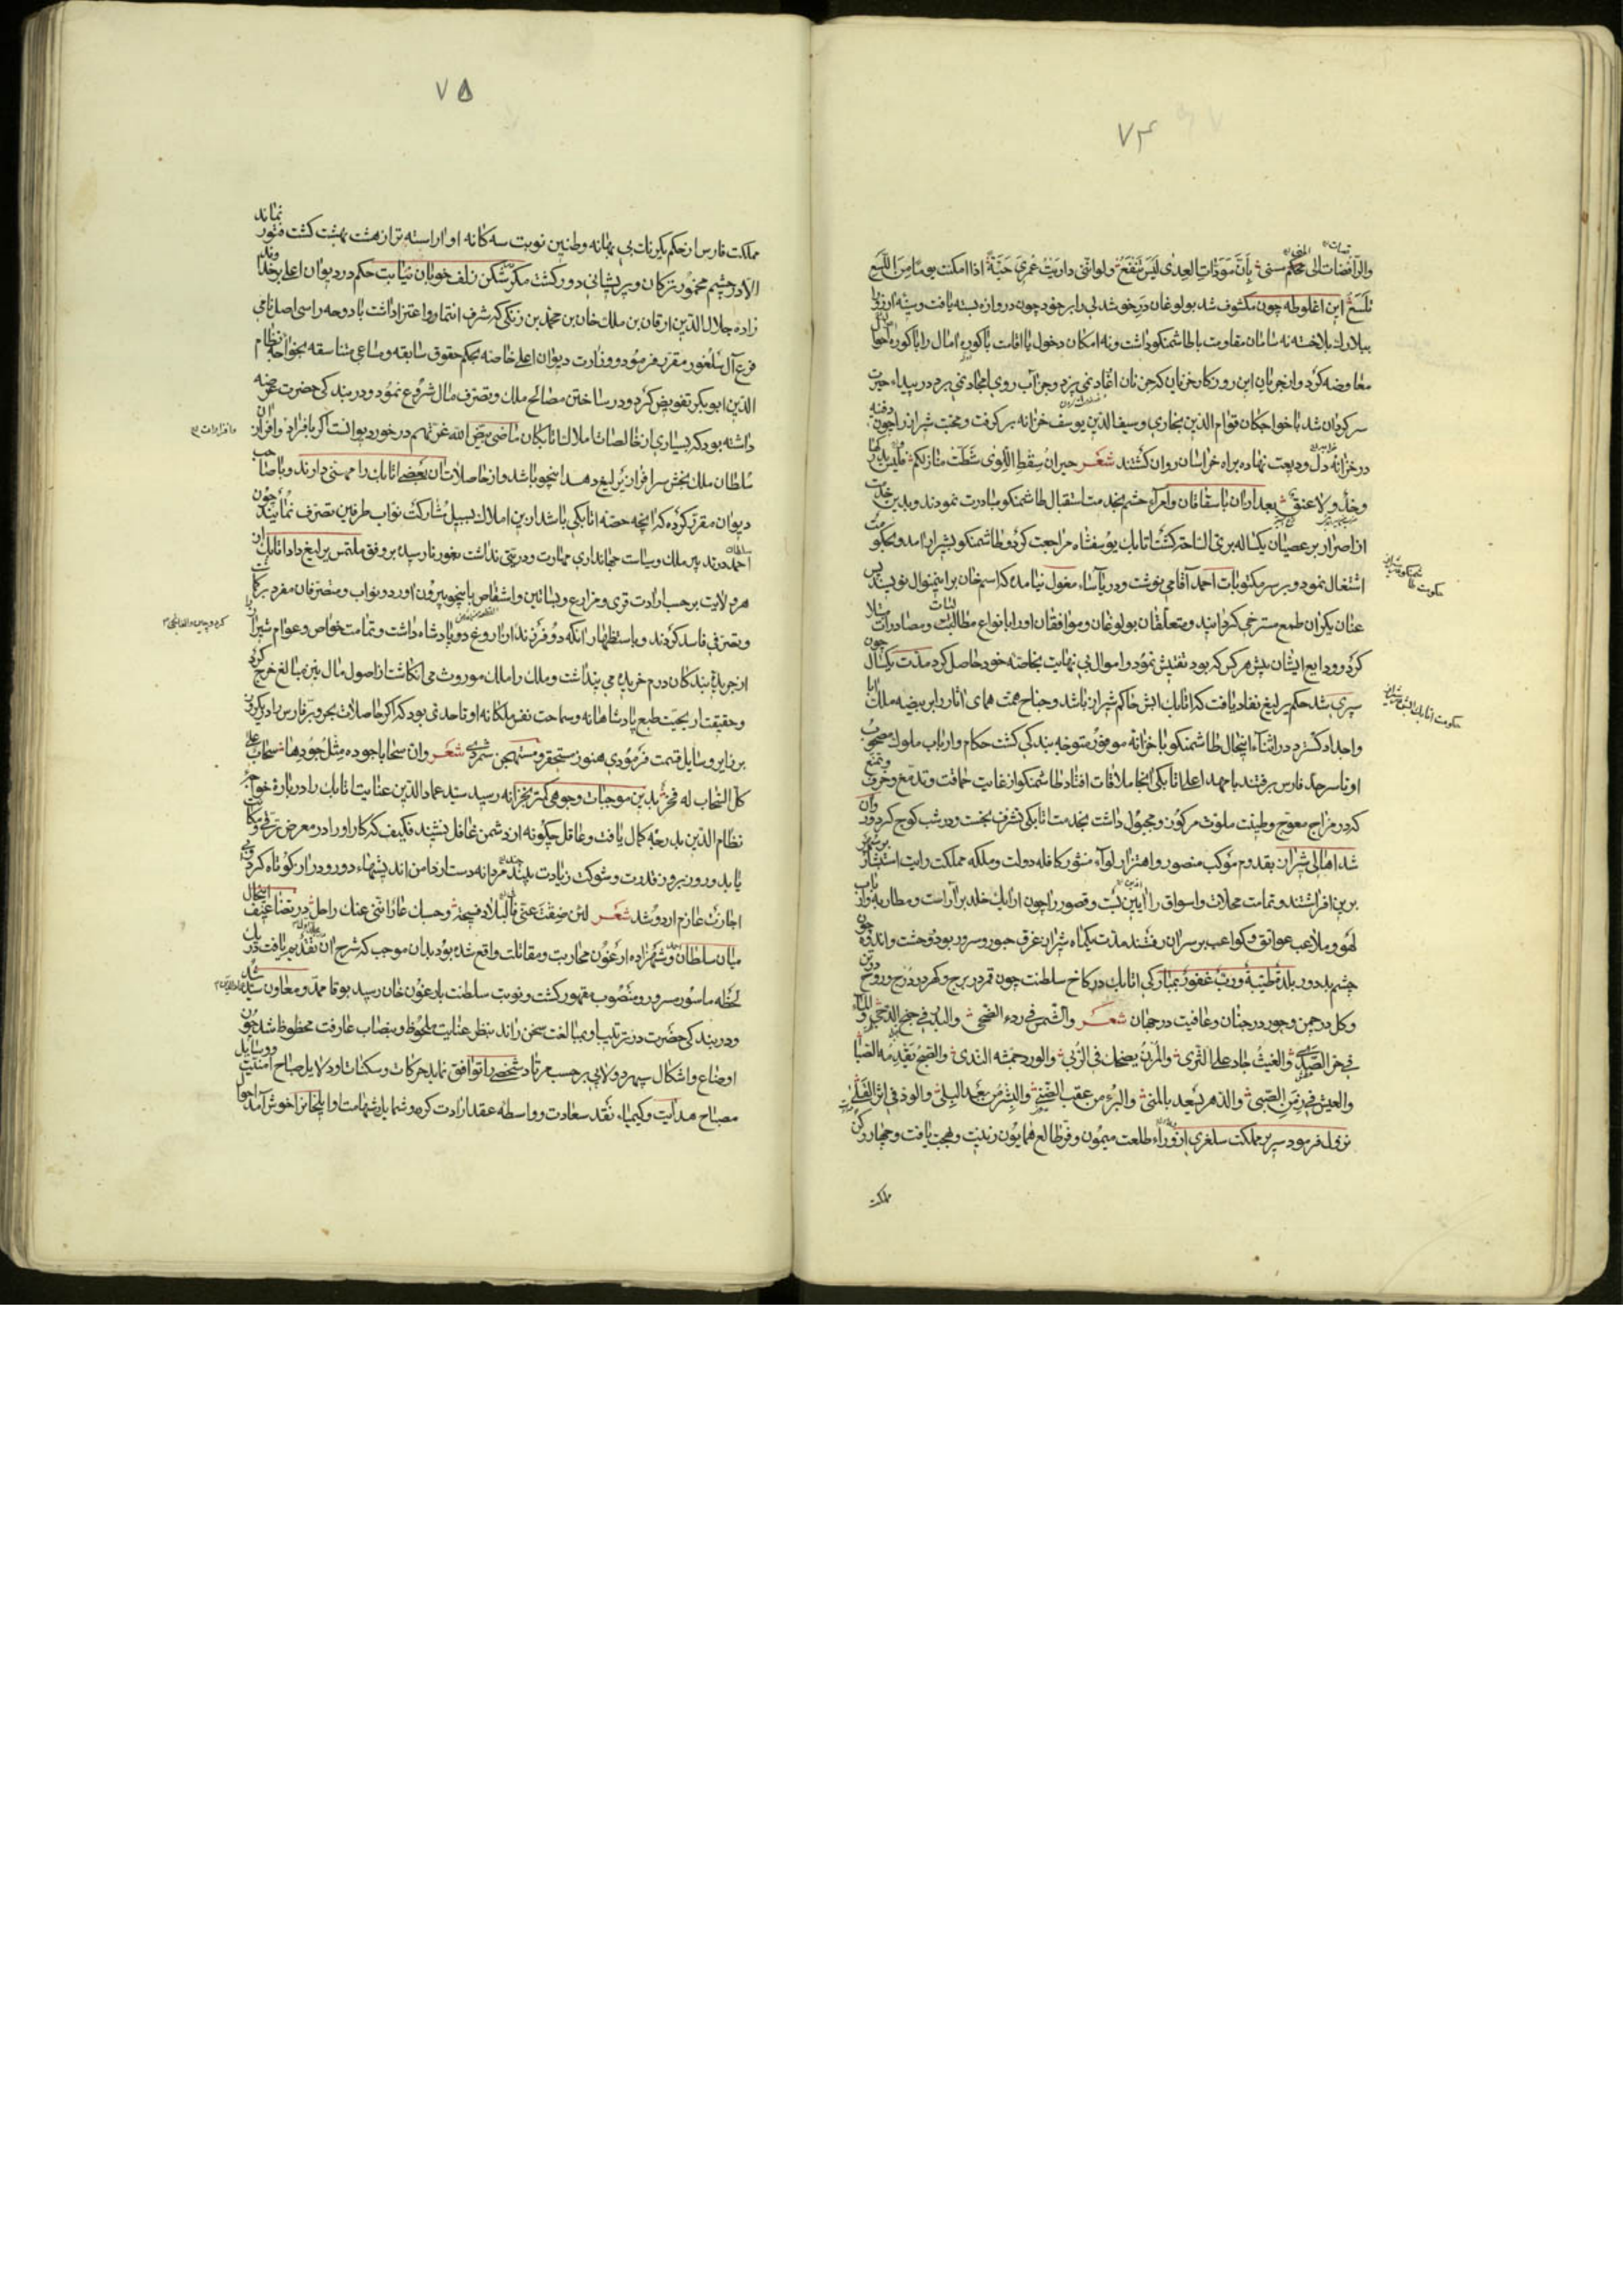 ۷۴
والرافضات الی محکم سنی بأن مودّات العدی لیس تنفع ولو انّنی داریت عمری حیّة اذا امکنت یوما من اللسع
تلسع این اغلوطه چون مکشوف شد بولوغان در خود شد لی را بر خود چون دروازه بسته یافت و
بیلارک بلاخته نه سامان مقاومت با طاشمنکو داشت و نه امکان دخول با اقامت باکوره امال را باکوره اجا
معاوضه کرد و از جریان این روزکار جز نان که جز نان اغادنمی پزد و جز آب روی امجاد نمی برد در بیداء حیرت
سرکردان شد با خواجکان قوام الدین بخاری و سیف الدین یوسف خزانه برکرفت و محبت شیراز را چون دفینه
در خزانه دل ودیعت نهاده براه خراسان روان کشتند شعر جیران سقط اللوی شطّت منازلکم فلیس
وخد ولا عنق بعد از ان باسقاقان و امرآء حشم بخدمت استقبال طاشمنکو مبادرت نمودند و بدین خدمت
از اصرار بر عصیان یکساله اتابک یوسفشاه مراجعت کرد و طاشمنکو بشیراز امد و بحکومت
اشتغال نمود و بر سر مکتوبات احمد آقامی نوشت و در یاساء مغول نیامده که اسم خان برین منوال نویسند پس
عنان یکران طمع مسترخی کردانید و متعلقان بولوغان و موافقان او را بانواع مطالبات و مصادرات مبتلا
کرد و ودایع ایشان پیش هر کس که بود تفتیش نمود و اموال بی نهایت بخاصّه خود حاصل کرد مدّت یکسال چون
سپری شد حکم یرلیغ نفاد یافت که اتابک ابش حاکم شیراز باشد و جناح همت همای اثار را بر بیضه ملک ابا
و اجداد کسترد در اثنآء اینحال طاشمنکو با خزانه موفور متوجه بندکی کشت حکام و ارباب ملوک مصحوب
او تا سرحد فارس برفتند با مهد اعلی اتابکی انجا ملاقات افتاد طاشمنکو از غایت حماقت و تدمّغ و خرف و تمنّع
که در مزاج معوج و طینت ملوّث مرکوز و مجبول داشت بخدمت اتابکی تشرف نجست و در شب کوچ کرد و روان
شد اهالی شیراز بقدوم موکب منصور و اهتزاز لوآء منشور کافله دولت و ملکه مملکت رایت استبشار بر سپهر
برین افراشتند و تمامت محلات و اسواق را آیین بست و قصور را چون ارایک خلد بر آراست و مطاربه و ارباب
لهو و ملاعب عواتق و کواعب بر سران رفتند مدّت یکماه شیراز غرق حبور و سرور بود و وحشت و اندوه چون
چشم بد دور بلدة طیّبة و ربّ غفور بمبارکی اتابک در کاخ سلطنت چون قمر در برج و کهر در درج و روح در تن
و کل در چمن و حور در جنان و عافیت در جهان شعر والشمس فی ردء الضحی والبدر فی جنح الدجی والماء
فی حرّ الصدی والغیث جاد علی الثری والمزن یضحک فی الربی والورد جمّشه الندی والصبح یقدمه الصبا
والعیش فی زمن الصبی والدهر یسعد بالمنی والبرء من عقب الضنی والبشر من بعد البلی
نزول فرمود سریر مملکت سلغری از ورآء طلعت میمون و فرّ طالع همایون زینت و بهجت یافت و چهار رکن
مملکت
حکومت طاشمنکو بشیراز
حکومت اتابک ابش بشیراز
۷۵
مملکت فارس از حکم یکرنک بی بهانه وطنین نوبت سه کانه او اراسته تر از هشت بهشت کشت فتور نماند
الا در چشم مخمور ترکان و پریشانی دور کشت مکر شکن زلف خوبان نیابت حکم در دیوان اعلی بر خداوند
زاده جلال الدین ارقان بن ملک خان بن محمد بن زنکی که شرف انتما و اعتزاز داشت با دوحه راسی اصل نامی
فرع آل سلغور مقرر فرمود و وزارت دیوان اعلی خاصه بحکم حقوق سابقه و مساعی متناسقه بخواجه نظام
الدین ابوبکر تفویض کرد و در ساختن مصالح ملک و تصرف مال شروع نمود و در بندکی حضرت عرضه
داشته بود که بسیاری از خالصات املاک اتابکان ماضی بیّض الله غرّتهم در خورد دیوانست اکر بافراز و افراز ان
سلطان ملک بخش سرافراز یرلیغ دهد اینجو باشد و از حاصلات ان بعضی اتابک را مهیّتی دارند و با صاحب
دیوان مقرر کرده که انچه حصه اتابکی باشد ازین املاک بسبیل مشارکت نوّاب طرفین تصرف نمایند چون
احمد در تدبیر ملک و سیاست جهانداری مهارت و دربتی نداشت بغور نارسیده بر وفق ملتمس یرلیغ داد اتابک از
هر ولایت بر حسب ارادت قری و مزارع و بساتین و اشقاص باینجو بیرون اورد و نوّاب و متصرفان مفرد برکاشت
و تصرفی فاسد کردند و باستظهار انکه دو فرزند از اروغ دو پادشاه داشت و تمامت خواص و عوام شیراز را
از جریده بندکان درم خریده می پنداشت و ملک را ملک موروث می انکاشت از اصول مال نیز مبالغ خرج کرد
و حقیقت اریحیّت طبع پادشاهانه و سماحت نفس ملکانه او تا حدی بود که اکر حاصلات بحر و بر فارس با دیکر
بر زایر و سایل قسمت فرمودی هنوز مستحقر و مستهجن شمردی شعر وانّ سحابا جوده مثل جودها سحاب علی
کل السحاب له فخر بدین موجبات وجوهی کمتر بخزانه رسید سید عماد الدین عنایت اتابک را در بارهٔ خواجه
نظام الدین بدرجه کمال یافت و عاقل چکونه از دشمن غافل نشیند فکیف که کار او را در معرض ترقی و
یابد و روز بروز قدرت و شوکت زیادت بیند مردانه دست از دامن اندیشهاء دور و دراز کوتاه کرد و بی
اجازت عازم اردو شد شعر لئن ضقت عنّی فالبلاد فسیحة وحسبک عارا انّنی عنک راحل در تضاعیف اینحال
میان سلطان و شهزاده ارغون محاربت و مقاتلت واقع شده بود بدان موجب که شرح ان تقدیم یافت در یک
لحظه ماسور سرور و منصوب مقهور کشت و نوبت سلطنت بارغون خان رسید بوقا ممدّ و معاون سید شد
و در بندکی حضرت در تربیت او بمبالغت سخن راند بنظر عنایت ملحوظ و بنصاب عارفت محظوظ شد چون
اوضاع و اشکال سپهر دولابی بر حسب مرتاد شخصی را توافق نماید حرکات و سکنات او دلایل صباح امنیت و وسایل
مصباح هدایت و کیمیاء نقد سعادت و واسطه عقد ارادت کردد شمایل شهامت او ایلخان را خوش آمد احوال
و افرازات